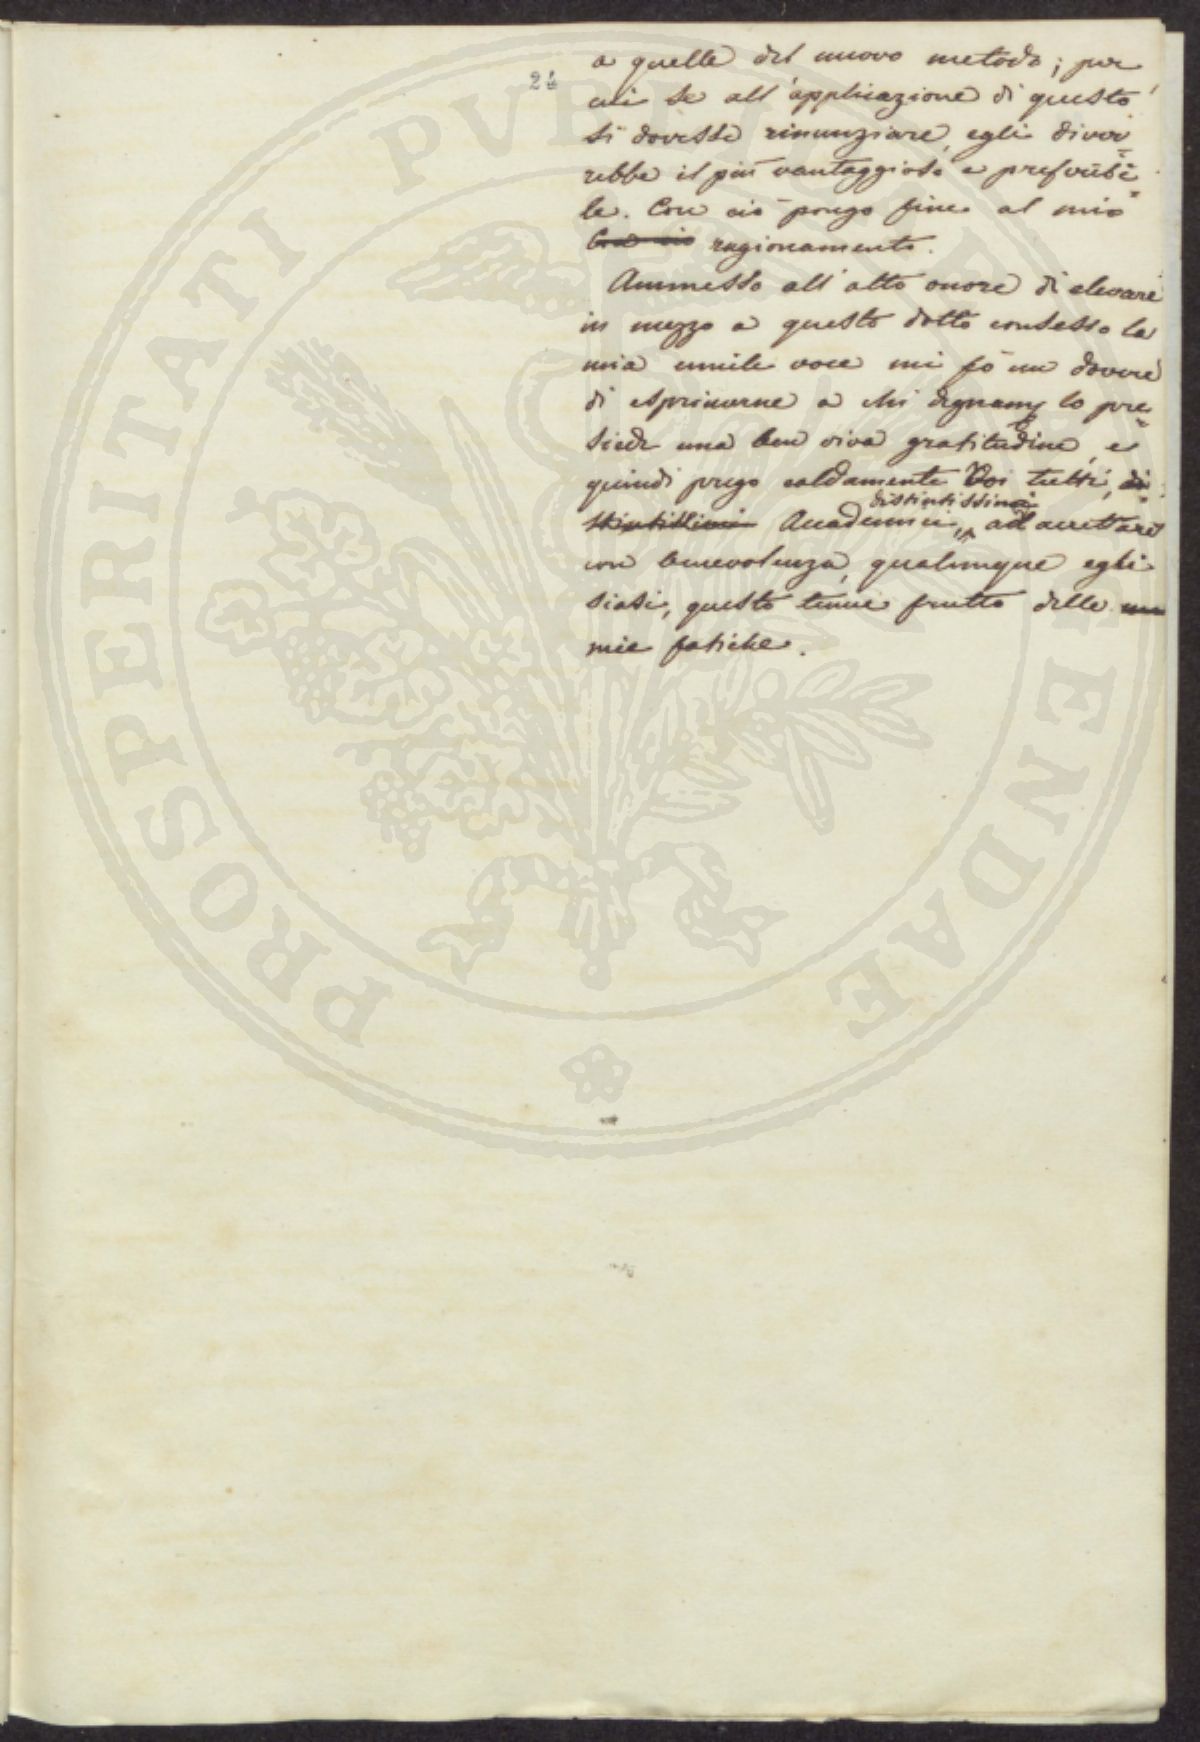 24
a quelle del nuovo metodo; per
cui se all'applicazione di questo
si dovesse rinunziare, egli diver=
rebbe il più vantaggioso e preferibi=
le. Con ciò pongo fine al mio
Con ciò ragionamento.
Ammesso all'alto onore di elevare
in mezzo a questo dotto consesso la
mia umile voce mi fò un dovere
di esprimerne a chi degnam.e lo pre=
siede una ben viva gratitudine, e
quindi prego caldamente Voi tutti, di
distintissimi
stintissimi Accademici, ad accettare
con benevolenza, qualunque egli
siasi, questo tenue frutto delle
mie fatiche.
PROSPERITATI PUBLICAE AUGENDAE